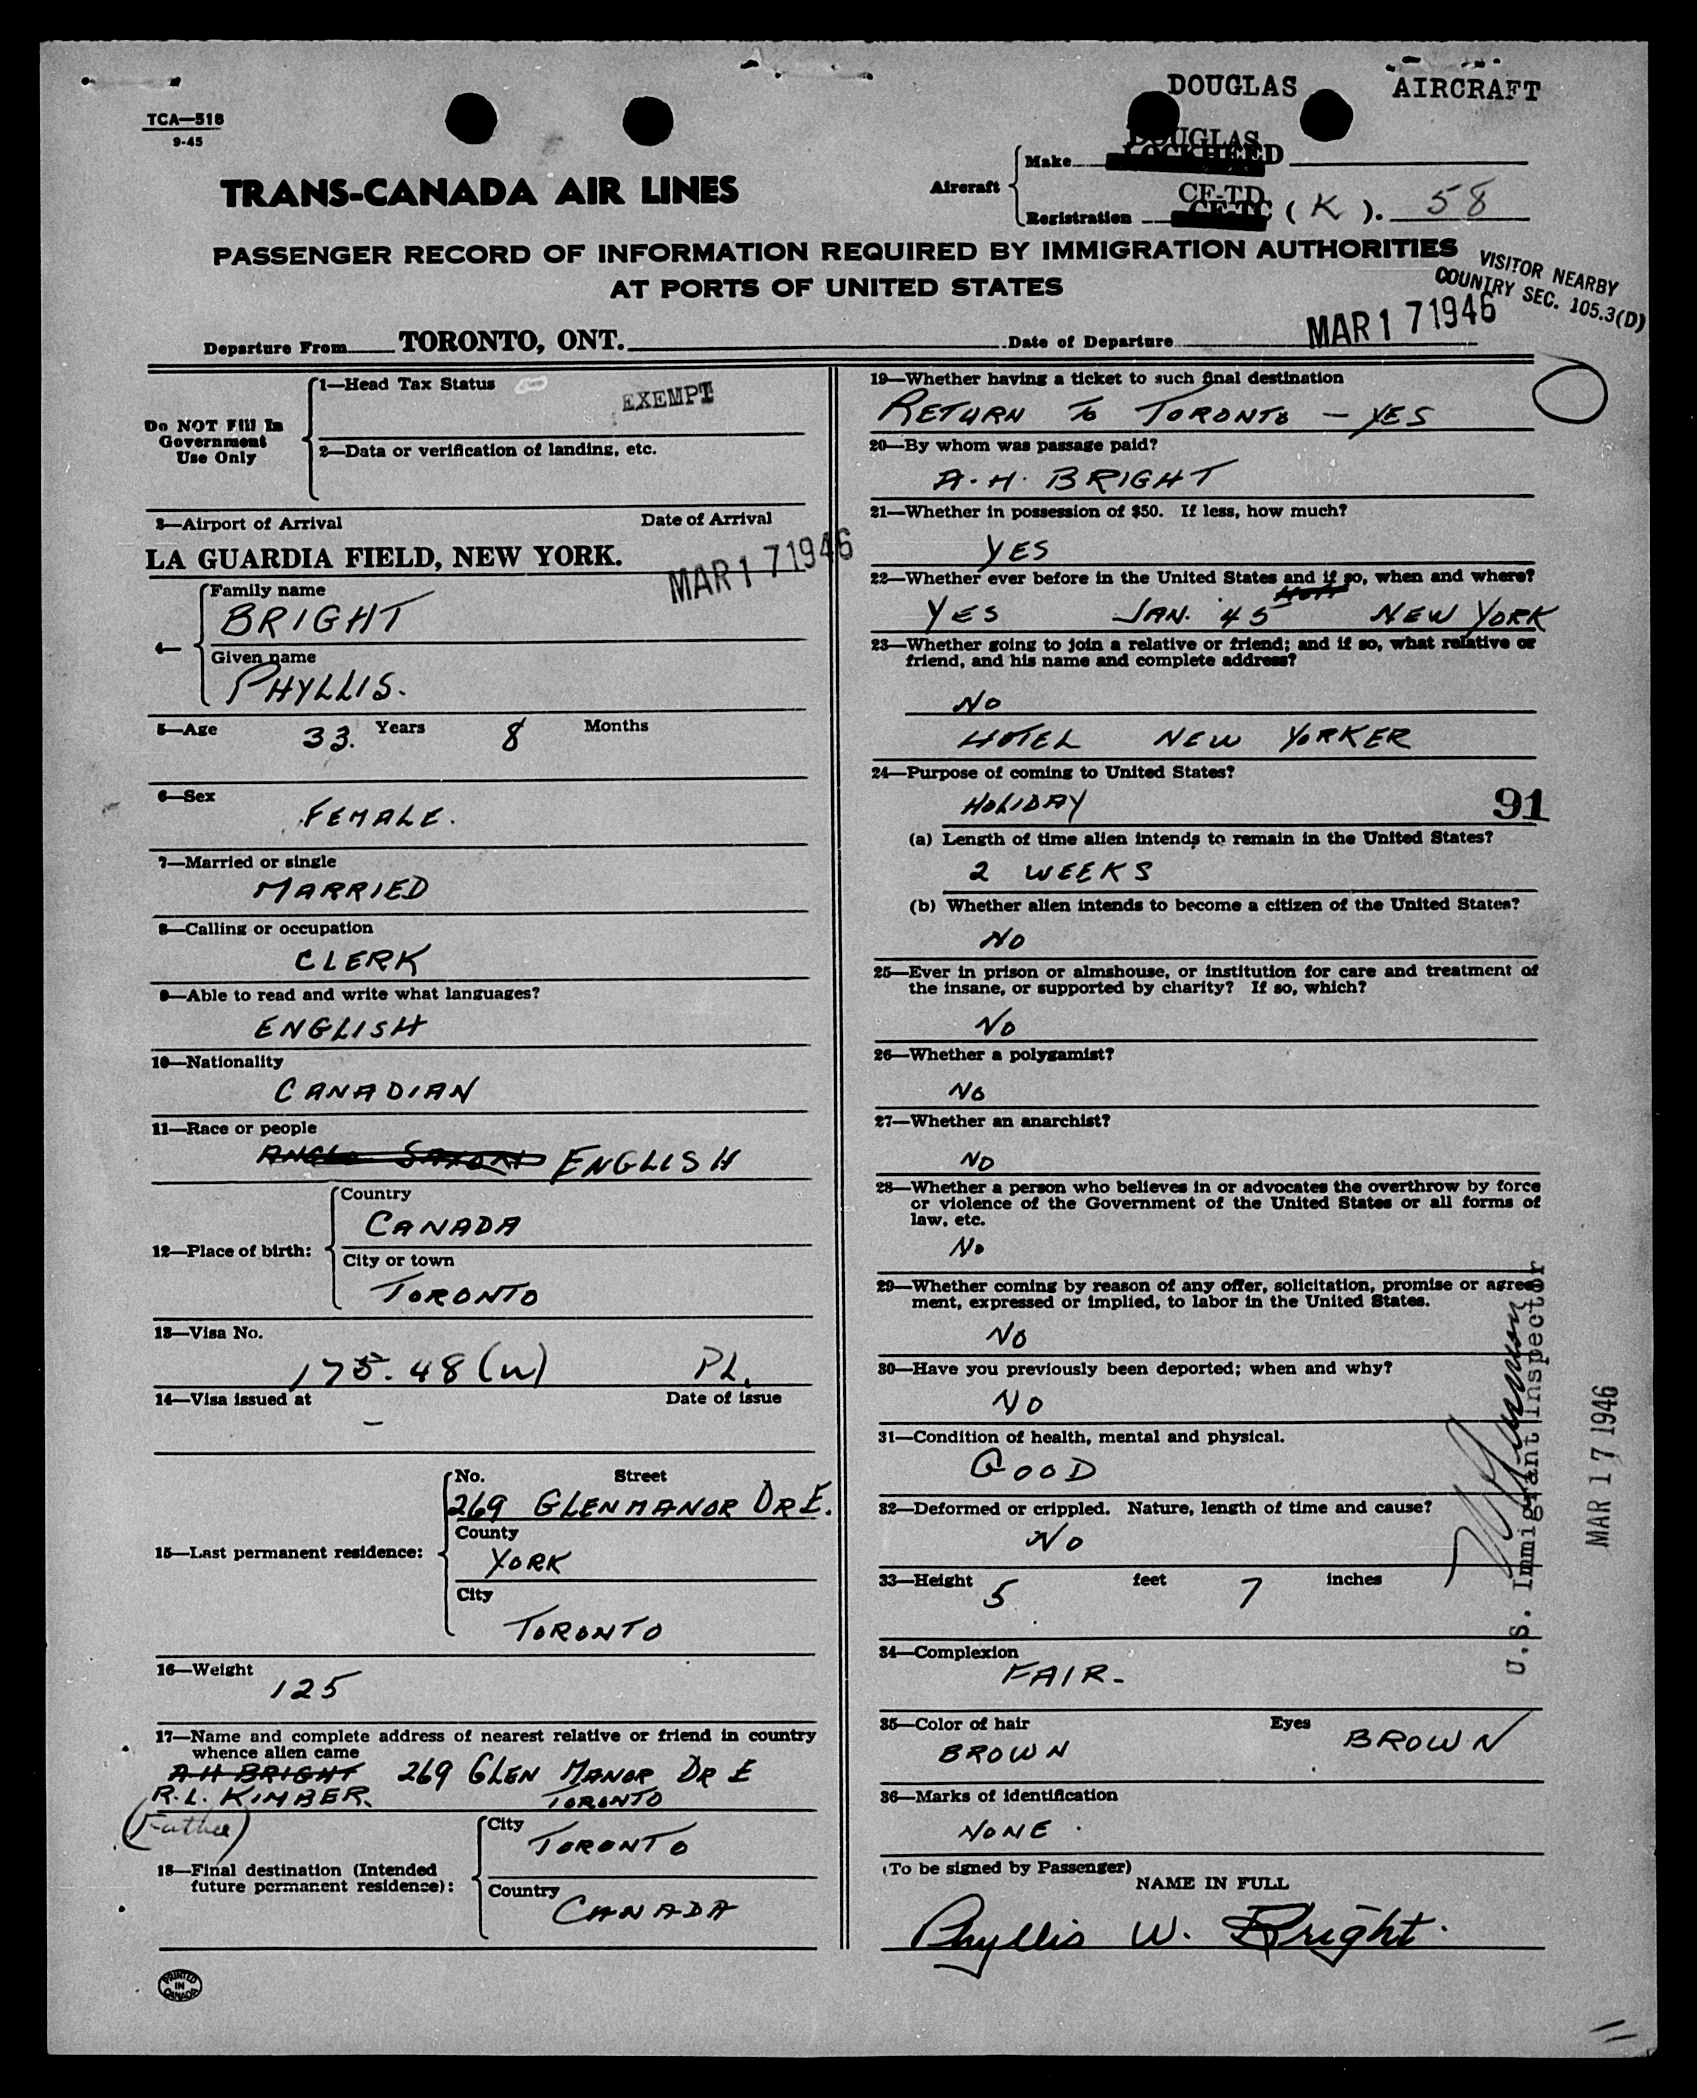 DOUGLAS AIRCRAFT
TCA—518
9-45
TRANS-CANADA AIR LINES
Aircraft
Make DOUGLAS LOCKHEED
Registration CF-TD CF-TC ( K ). 58
PASSENGER RECORD OF INFORMATION REQUIRED BY IMMIGRATION AUTHORITIES
AT PORTS OF UNITED STATES
VISITOR NEARBY
COUNTRY SEC. 105.3(D)
Departure From TORONTO, ONT. Date of Departure MAR 17 1946
Do NOT Fill In
Government
Use Only
1—Head Tax Status EXEMPT
2—Data or verification of landing, etc.
3—Airport of Arrival Date of Arrival
LA GUARDIA FIELD, NEW YORK. MAR 17 1946
4—
Family name
BRIGHT
Given name
PHYLLIS.
5—Age 33. Years 8 Months
6—Sex
FEMALE.
7—Married or single
MARRIED
8—Calling or occupation
CLERK
9—Able to read and write what languages?
ENGLISH
10—Nationality
CANADIAN
11—Race or people
ANGLO SAXON ENGLISH
12—Place of birth:
Country
CANADA
City or town
TORONTO
13—Visa No.
175.48 (W) PL.
14—Visa issued at Date of issue
—
15—Last permanent residence:
No. Street
269 GLENMANOR DR E.
County
YORK
City
TORONTO
16—Weight
125
17—Name and complete address of nearest relative or friend in country
whence alien came
A H BRIGHT 269 GLEN MANOR DR E
R. L. KIMBER. TORONTO
(Father)
18—Final destination (Intended
future permanent residence):
City
TORONTO
Country
CANADA
PRINTED
IN
CANADA
19—Whether having a ticket to such final destination
RETURN TO TORONTO — YES
20—By whom was passage paid?
A. H. BRIGHT
21—Whether in possession of $50. If less, how much?
YES
22—Whether ever before in the United States and if so, when and where?
YES JAN. '45 NEW YORK
23—Whether going to join a relative or friend; and if so, what relative or
friend, and his name and complete address?
NO
HOTEL NEW YORKER
24—Purpose of coming to United States?
HOLIDAY 91
(a) Length of time alien intends to remain in the United States?
2 WEEKS
(b) Whether alien intends to become a citizen of the United States?
NO
25—Ever in prison or almshouse, or institution for care and treatment of
the insane, or supported by charity? If so, which?
NO
26—Whether a polygamist?
NO
27—Whether an anarchist?
NO
28—Whether a person who believes in or advocates the overthrow by force
or violence of the Government of the United States or all forms of
law, etc.
NO
29—Whether coming by reason of any offer, solicitation, promise or agree-
ment, expressed or implied, to labor in the United States.
NO
30—Have you previously been deported; when and why?
NO
31—Condition of health, mental and physical.
GOOD
32—Deformed or crippled. Nature, length of time and cause?
NO
33—Height 5 feet 7 inches
34—Complexion
FAIR-
35—Color of hair Eyes
BROWN BROWN
36—Marks of identification
NONE.
(To be signed by Passenger)
NAME IN FULL
Phyllis W. Bright.
U.S. Immigrant Inspector
MAR 17 1946